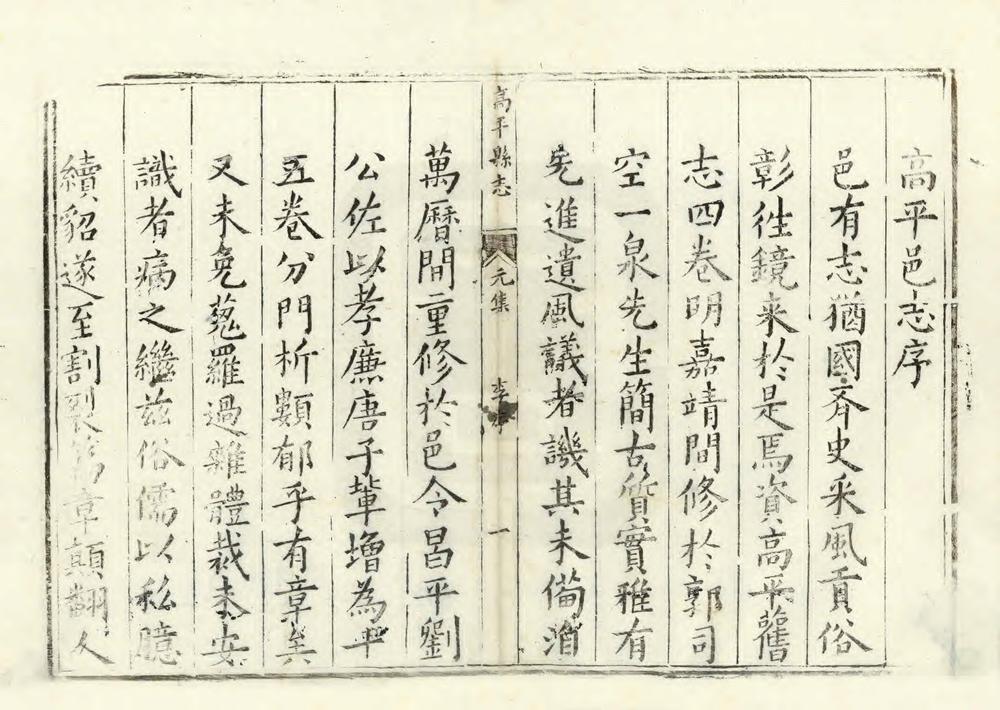 高平邑志序
邑有志猶國齊史采風貢俗
彰徃鏡来於是焉資高平舊
志四卷明嘉靖間修於郭司
空一泉先生簡古質實雅有
先進遺風議者譏其未備洎
高平縣志 元集 李序 一
萬曆間重修於邑令昌平劉
公佐以孝廉唐子輩增為平
五卷分門析類郁乎有章矣
又未免蒐羅過雜體裁未安
識者病之繼兹俗儒以私臆
續貂遂至割裂篇章顛翻人